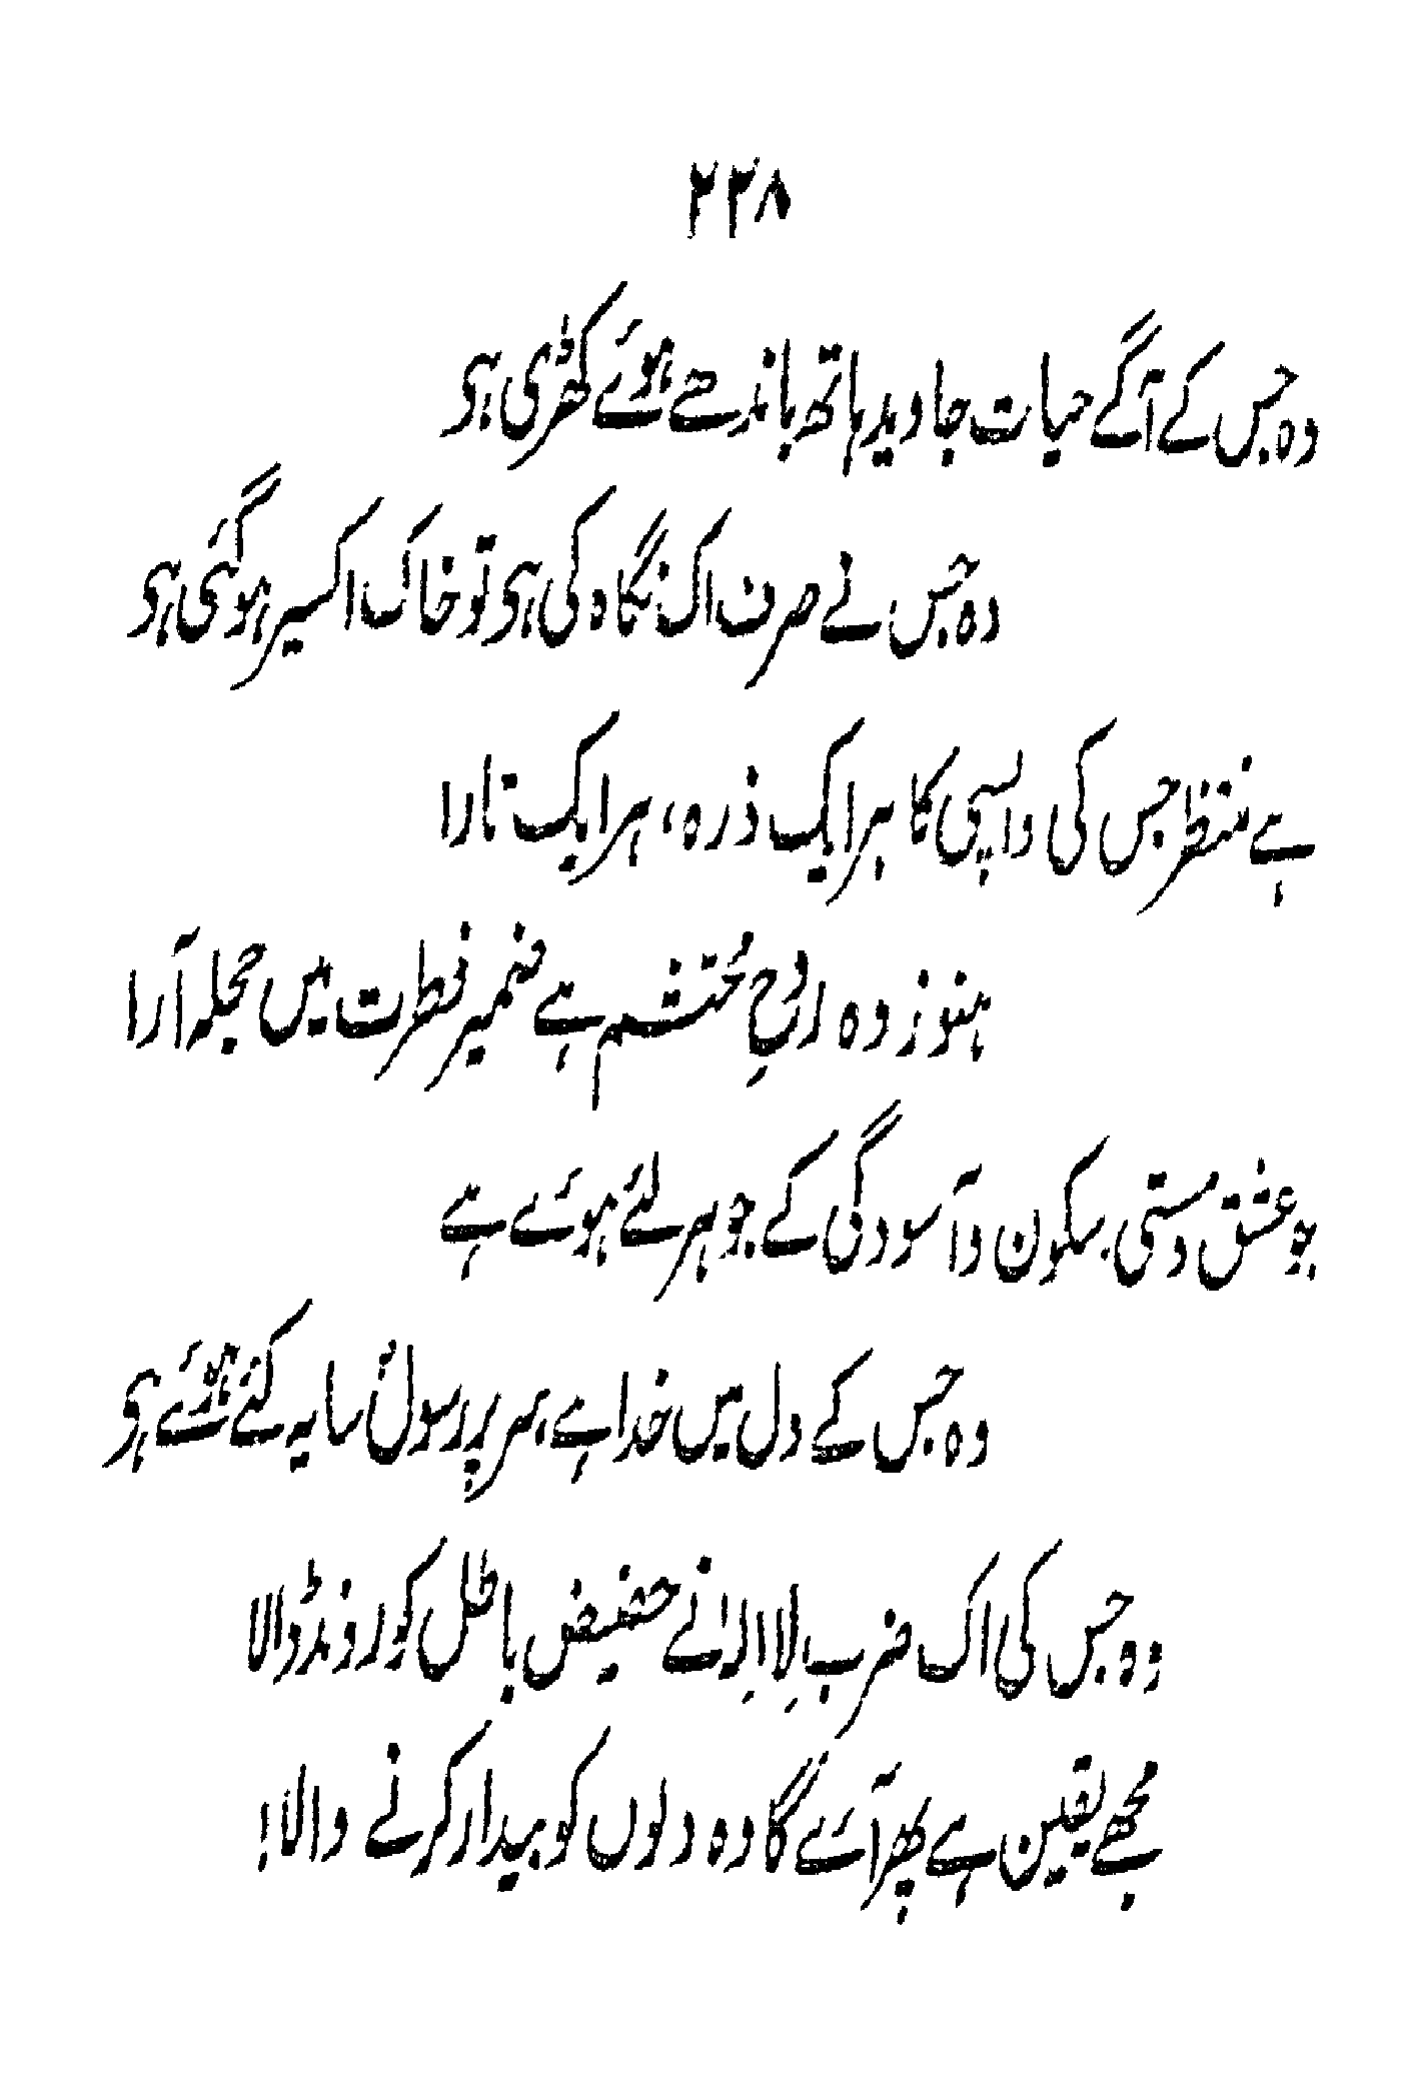 ۲۳۸
وہ جس کے آگے حیات جاوید ہاتھ باندھے ہوئے کھڑی ہی
وہ جس نے صرف اک نگاہ کی ہی تو خاک اکسیر ہوگئی ہی
ہے منتظر جس کی واپسی کا ہر ایک ذرہ، ہر ایک تارا
ہنوز وہ روحِ محتشم ہے ضمیر فطرت میں حجلہ آرا
جو عشق و مستی، سکون و آسودگی کے جوہر لئے ہوئے ہے
وہ جس کے دل میں خدا ہے، سر پر رسولؐ سایہ کئے ہوئے ہی
وہ جس کی اک ضرب لِا اِلہٰ نے حضیض باطل کو روند ڈالا
مجھے یقین ہے پھر آئے گا وہ دلوں کو بیدار کرنے والا!